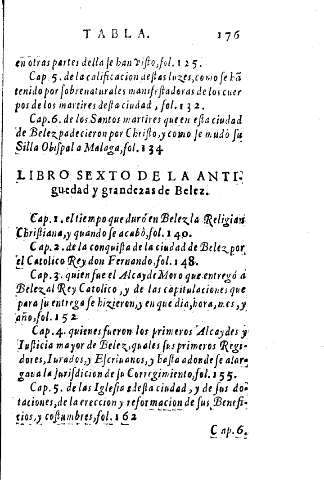 TABLA. 176
en otras partes della se han visto, fol. 125.
Cap. 5. de la calificacion destas luzes, como se hã
tenido por sobrenaturales manifestadoras de los cuer
pos de los martires desta ciudad, fol. 132.
Cap. 6. de los Santos martires que en esta ciudad
de Belez padecieron por Christo, y como se mudò su
Silla Obispal a Malaga, fol. 134
LIBRO SEXTO DE LA ANTI-
guedad y grandezas de Belez.
Cap. 1. el tiempo que durò en Belez la Religian
Christiana, y quando se acabò, fol. 140.
Cap. 2. de la conquista de la ciudad de Belez por
el Catolico Rey don Fernando, fol. 148.
Cap. 3. quien fue el Alcayde Moro que entregò a
Belez al Rey Catolico, y de las capitulaciones que
para su entrega se hizieron, y en que dia, hora, mes, y
año, fol. 152
Cap. 4. quienes fueron los primeros Alcaydes y
Iusticia mayor de Belez, quales sus primeros Regi-
dores, Iurados, y Escriuanos, y hasta adonde se alar-
gaua la Iurisdicion de su Corregimiento, fol. 155.
Cap. 5. de las Iglesias desta ciudad, y de sus do-
taciones, de la ereccion y reformacion de sus Benefi-
cios, y costumbres, fol. 162
Cap. 6.